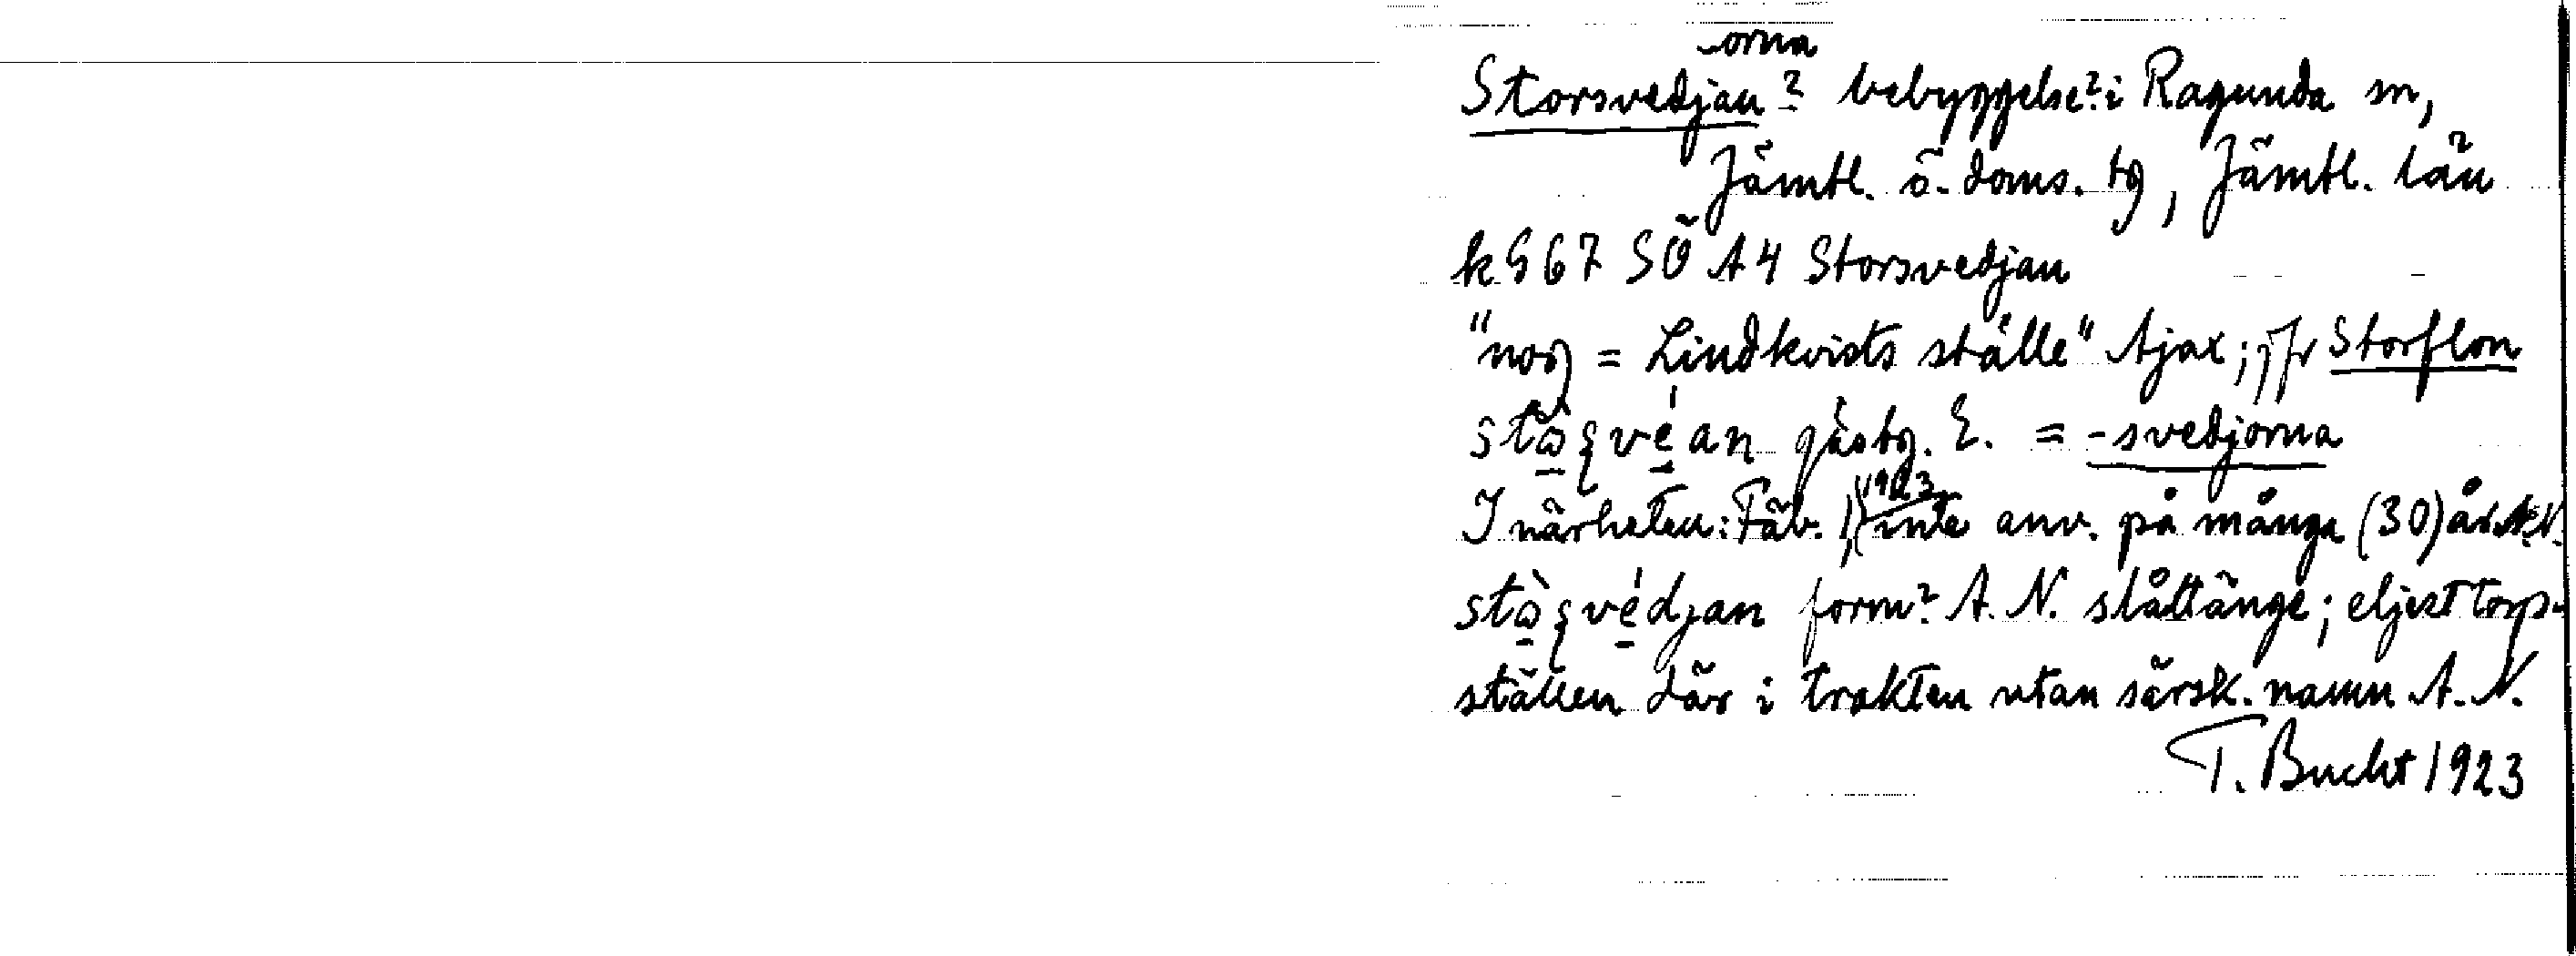 -orna
Storsvedjan? bebyggelse? i Ragunda sn,
Jämtl. ö. doms. tg, Jämtl. län
k G 67 SÖ A4 Storsvedjan
"nog = Lindkvists ställe" Ajax; jfr Storflon
gästg. E. = -svedjorna
I närheten: Fäb. 1923 inte anv. på många (30) år A.N.
form? A. N. slåttänge; eljest torp-
ställen där i trakten utan särsk. namn A. N.
T. Bucht 1923